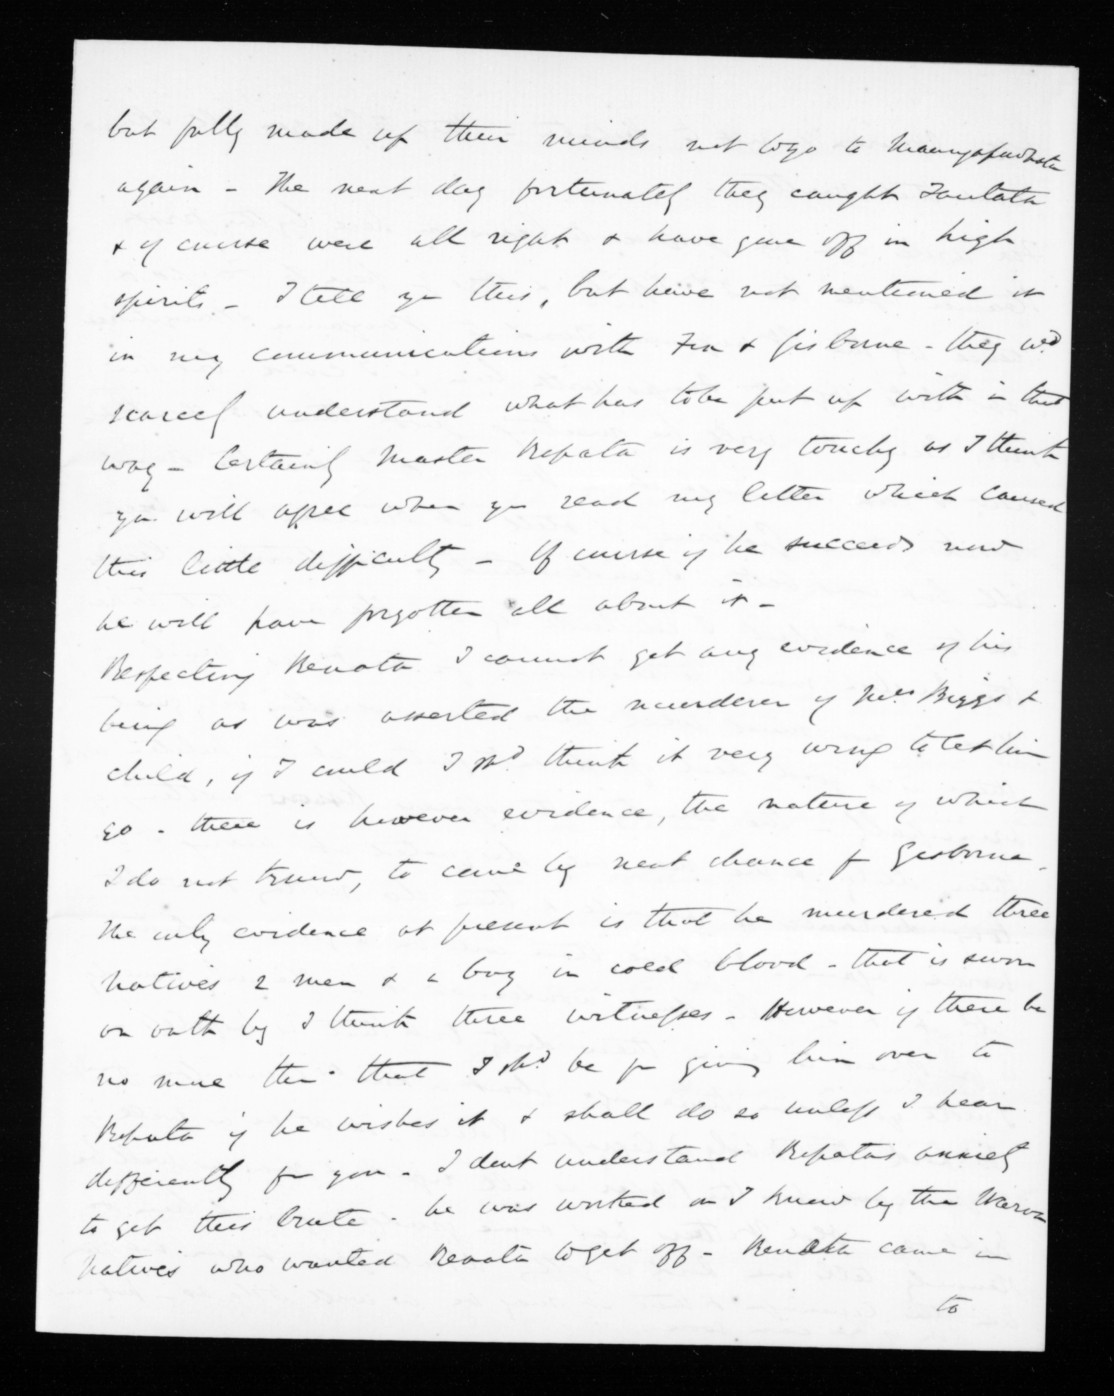 but fully made up their minds not to go to Maungapowhatu
again - The next day fortunately they caught Tautata
& of course were all right & have gone off in high
spirits - I tell you this, but have not mentioned it
in my communications with Fox & Gisborne - they wd
scarcely understand what has to be put up with in that
way - Certainly Master Ropata is very touchy as I think
you will agree when you read my letter which caused
this little difficulty - Of course if he succeeds now
he will have forgotten all about it -
Respecting Renata I cannot get any evidence of his
being as was asserted the murderer of Mrs Biggs &
child, if I could I shd think it very wrong to let him
go - there is however evidence, the nature of which
I do not know, to come by next chance fr Gisborne -
The only evidence at present is that he murdered three
Natives 2 men & a boy in cold blood - that is sworn
on oath by I think three witnesses - However if there be
no more than that I shd be for giving him over to
Ropata if he wishes it & shall do so unless I hear
differently fr you - I dont understand Ropatas anxiety
to get this brute - he was worked on I know by the Wairoa
Natives who wanted Renata to get off - Renata came in
to